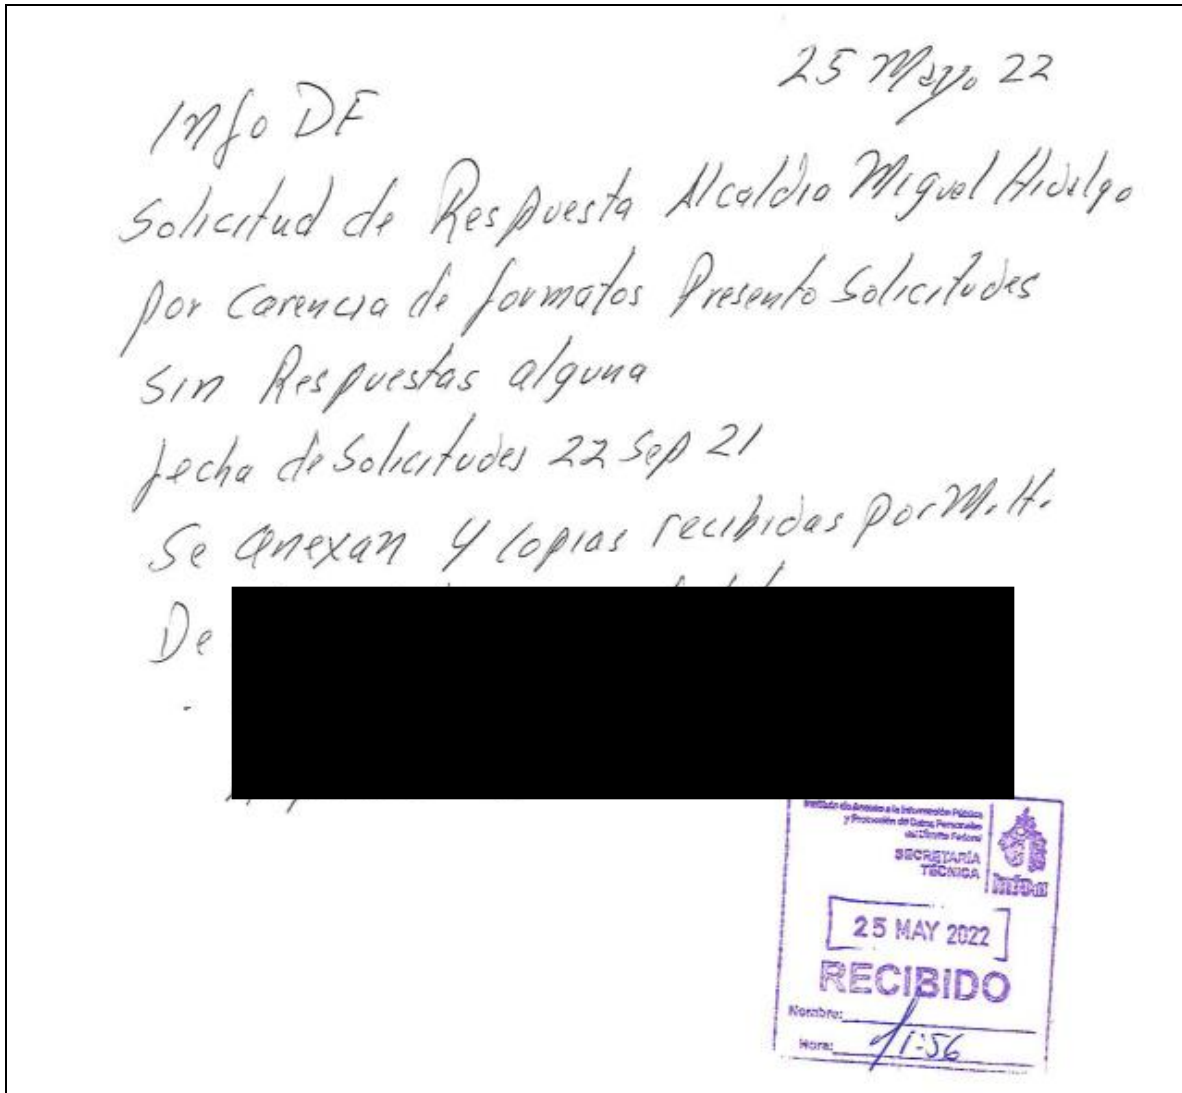 25 Mayo 22
Info DF
Solicitud de Respuesta Alcaldia Miguel Hidalgo
por Carencia de formatos Presento Solicitudes
Sin Respuestas alguna
fecha de Solicitudes 22 Sep 21
Se anexan 4 copias recibidas por M.H.
De
Instituto de Acceso a la Información Pública
y Protección de Datos Personales
del Distrito Federal
SECRETARÍA
TÉCNICA
25 MAY 2022
RECIBIDO
Nombre:
Hora: 11:56